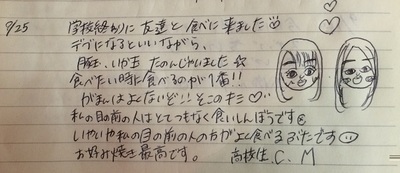 9/25 学校終わりに友達と食べに来ました
デブになるといいながら、
豚玉、いか玉 たのんじゃいました☆
食べたい時に食べるのが1番!!
がまんはよくないぞ!!そこのキミ♡
私の目の前の人はとてつもなく食いしんぼうです
いやいや私の目の前の人の方がよく食べるぶたです
お好み焼き最高です。 高校生 C. M